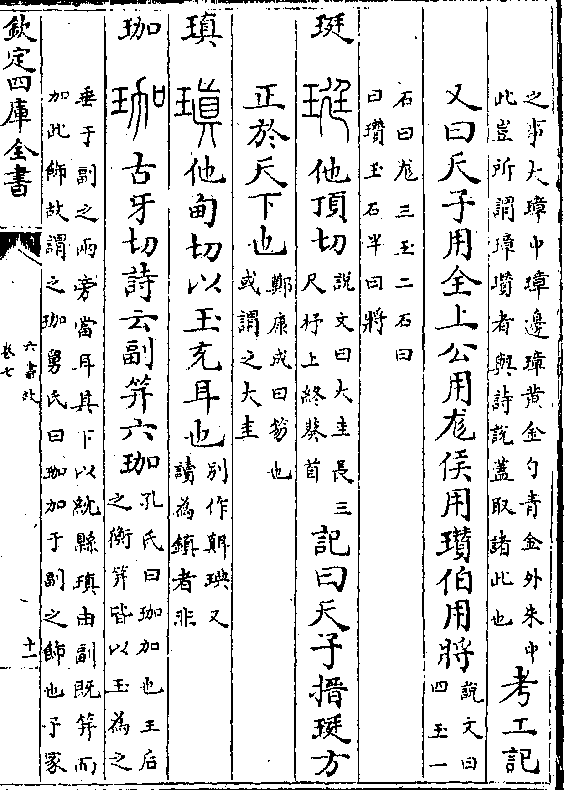 之事大璋中璋邊璋黃金勺青金外朱中
此豈所謂璋瓚者與詩說蓋取諸此也
考工記
又曰天子用全上公用尨侯用瓚伯用將
說文曰
四玉一
石曰尨三玉二石曰
曰瓚玉石半曰將
珽
珽他頂切
說文曰大圭長三
尺杼上終葵首
記曰天子搢珽方
正於天下也
鄭康成曰笏也
或謂之大圭
瑱
瑱他甸切以玉充耳也
別作又
讀為鎮者非
珈
珈古牙切詩云副筓六珈
孔氏曰珈加也王后
之衡筓皆以玉為之
垂于副之兩旁當耳其下以紞縣瑱由副既筓而
加此飾故謂之珈舅氏曰珈加于副之飾也予家
欽定四庫全書
六書故
卷七
十一